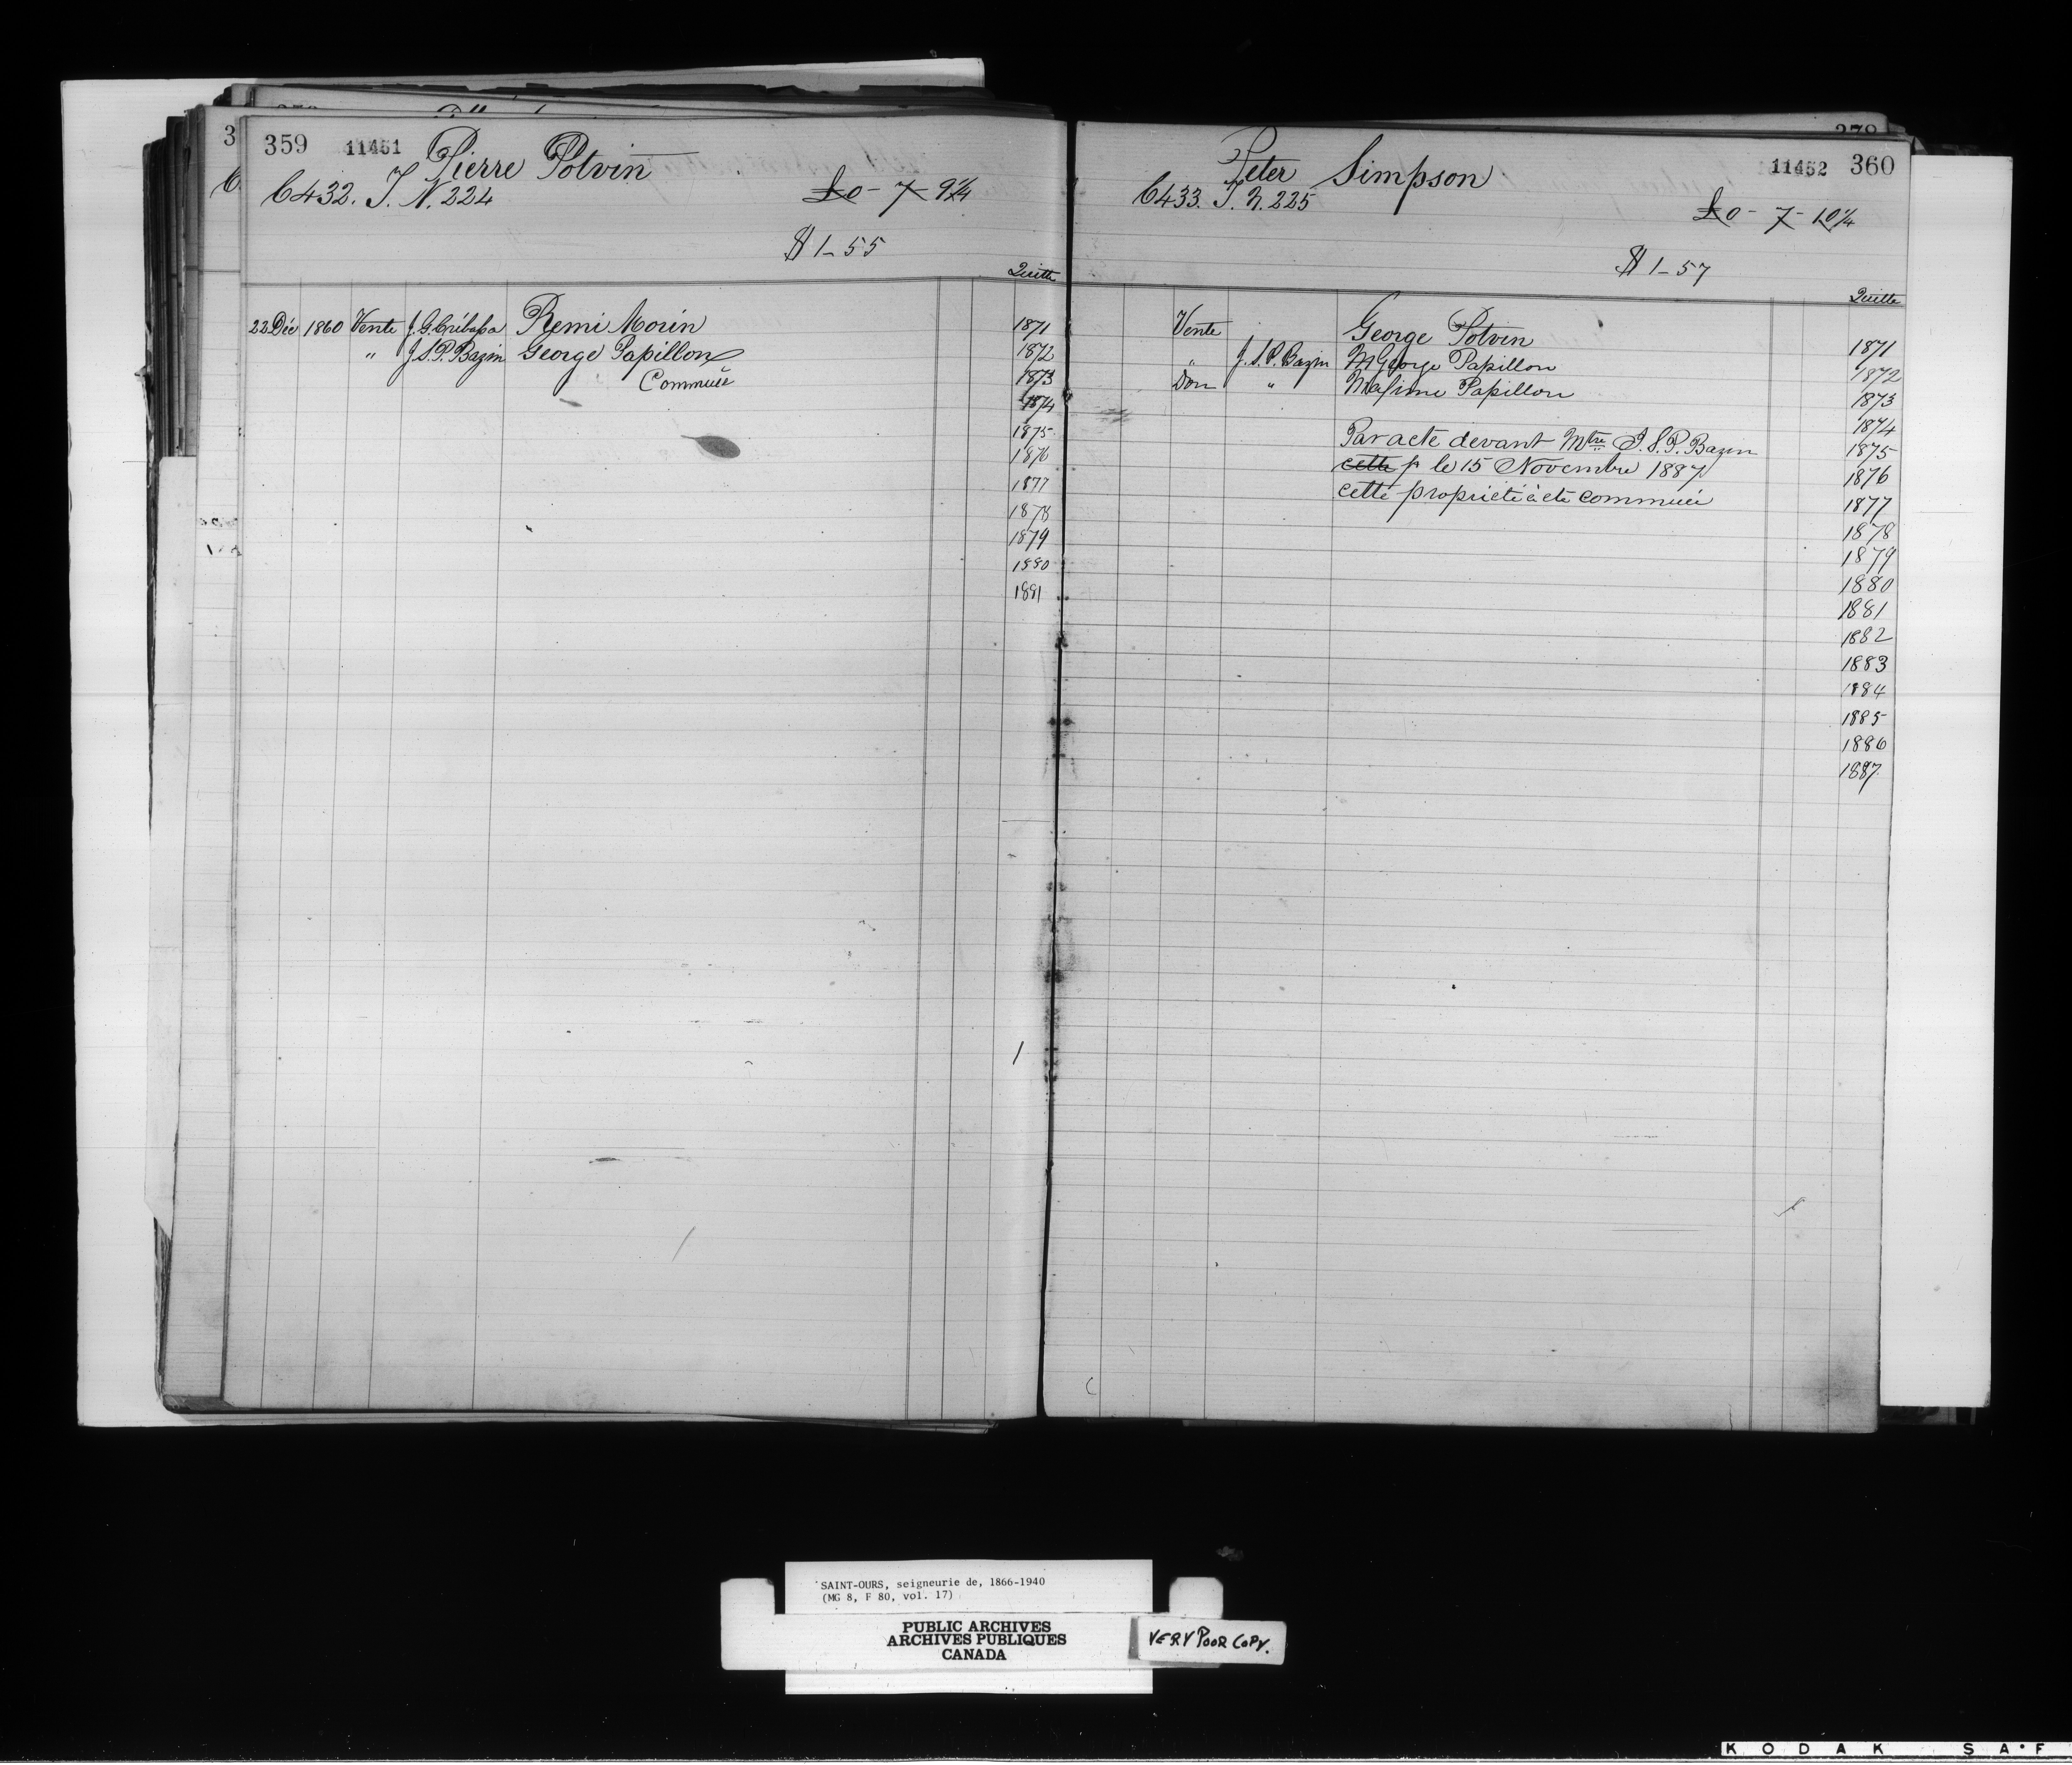 359 11451 Pierre Potvin
C432. T. N. 224 £0-7-9¼
$1-55
Quitte
22 Déc 1860 Vente J. G. Crébassa Remi Morin 1871
" J.S.P. Bazin George Papillon 1872
Commuée 1873
1874
1875
1876
1877
1878
1879
1880
1881
Peter Simpson 11452 360
C433. T. N. 225 £0-7-10¼
$1-57
Quitte
Vente George Potvin 1871
" J.S.P. Bazin M George Papillon 1872
Don " Maxime Papillon 1873
1874
Par acte devant Mtre J.S.P. Bazin 1875
cette p le 15 Novembre 1887 1876
cette propriété à été commuée 1877
1878
1879
1880
1881
1882
1883
1884
1885
1886
1887
SAINT-OURS, seigneurie de, 1866-1940
(MG 8, F 80, vol. 17)
PUBLIC ARCHIVES
ARCHIVES PUBLIQUES
CANADA
VERY POOR COPY.
KODAK SA•F